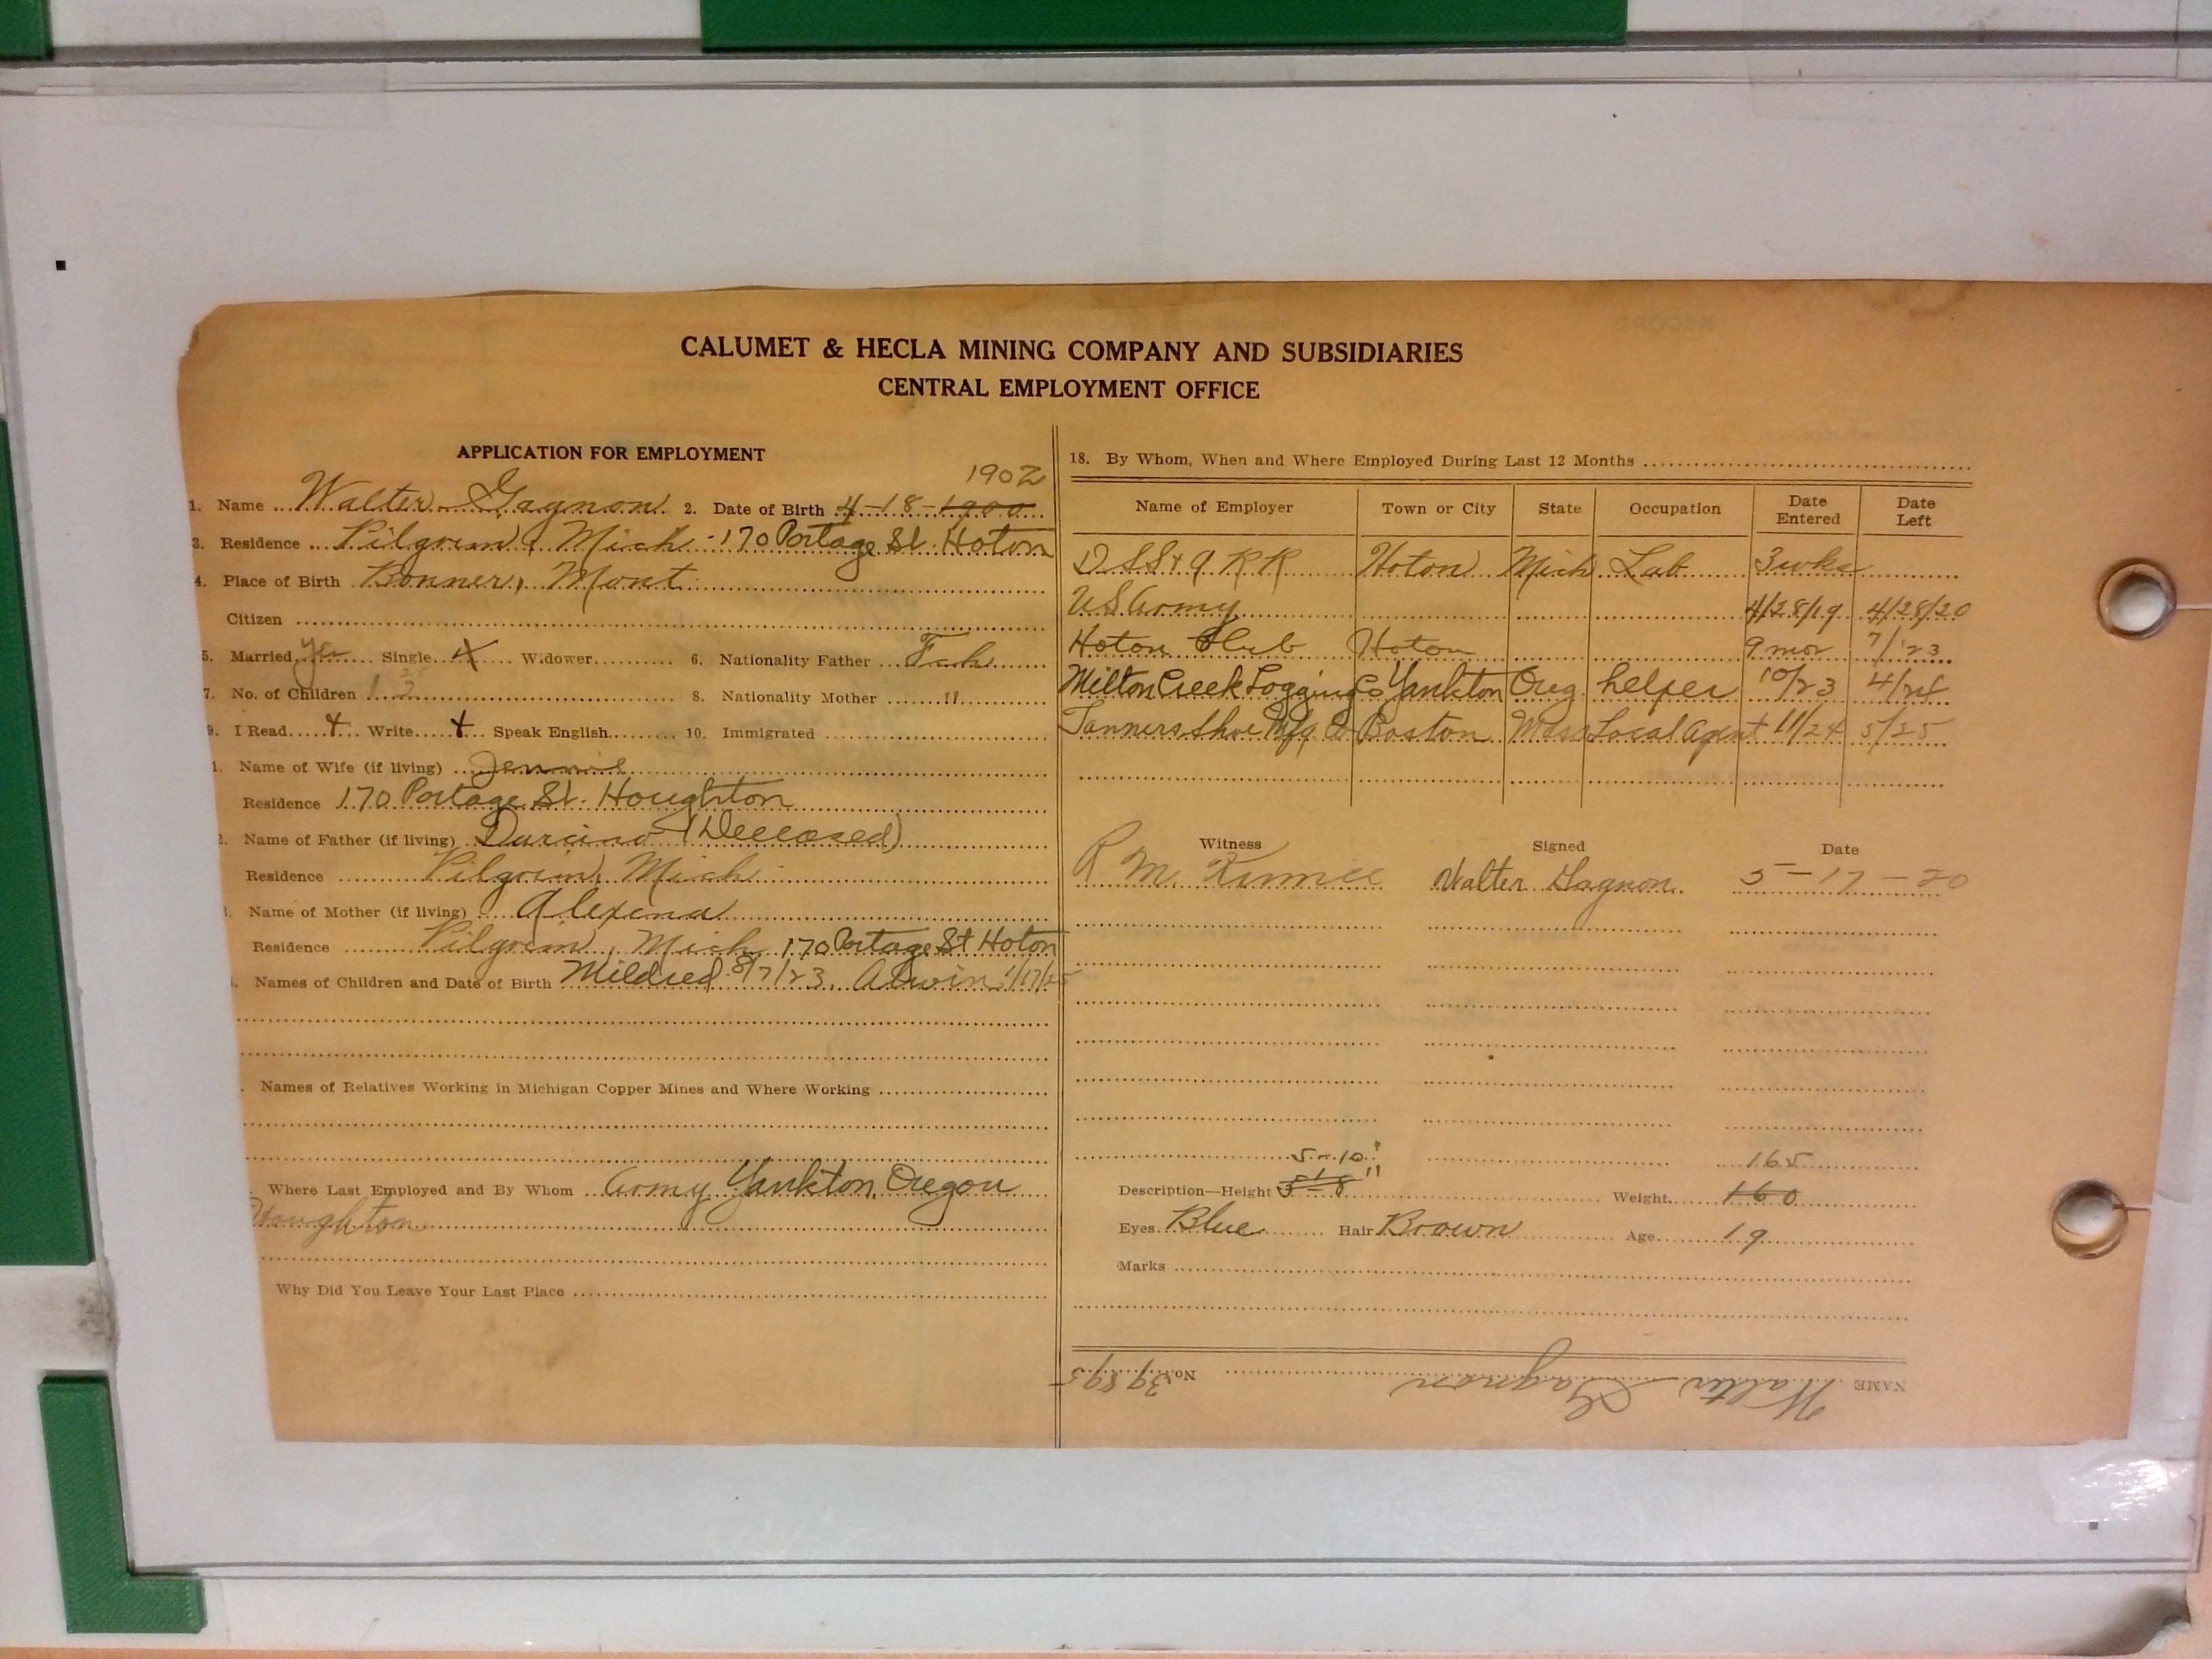 CALUMET & HECLA MINING COMPANY AND SUBSIDIARIES
CENTRAL EMPLOYMENT OFFICE
APPLICATION FOR EMPLOYMENT
1902
1. Name Walter Gagnon 2. Date of Birth 4-18-1900
3. Residence Pilgrim, Mich 170 Portage St Hoton
4. Place of Birth Bonner, Mont
Citizen
5. Married yes Single x Widower 6. Nationality Father Fch
7. No. of Children 1 2 8. Nationality Mother "
9. I Read x Write x Speak English 10. Immigrated
1. Name of Wife (if living) Jennie
Residence 170 Portage St. Houghton
2. Name of Father (if living) (Deceased)
Residence Pilgrim, Mich
3. Name of Mother (if living) Alexina
Residence Pilgrim, Mich 170 Portage St Hoton
Names of Children and Date of Birth Mildred 8/7/23, Alwin 1/17/25
Names of Relatives Working in Michigan Copper Mines and Where Working
Where Last Employed and By Whom Army Yankton, Oregon
Houghton
Why Did You Leave Your Last Place
18. By Whom, When and Where Employed During Last 12 Months
Name of Employer Town or City State Occupation Date Entered Date Left
D SS & A RR Hoton Mich Lab 3 wks
US Army 4/28/19 4/28/20
Hoton Club Hoton 9 mos 7/'23
Milton Creek Logging Co Yankton Oreg. helper 10/23 4/24
Tanners Shoe Mfg Co Boston Mass Local Agent 11/24 5/25
Witness Signed Date
R M. Walter Gagnon 5-17-20
5-10" 165
Description—Height 5-8" Weight 160
Eyes Blue Hair Brown Age 19
Marks
NAME Walter Gagnon No. 39895